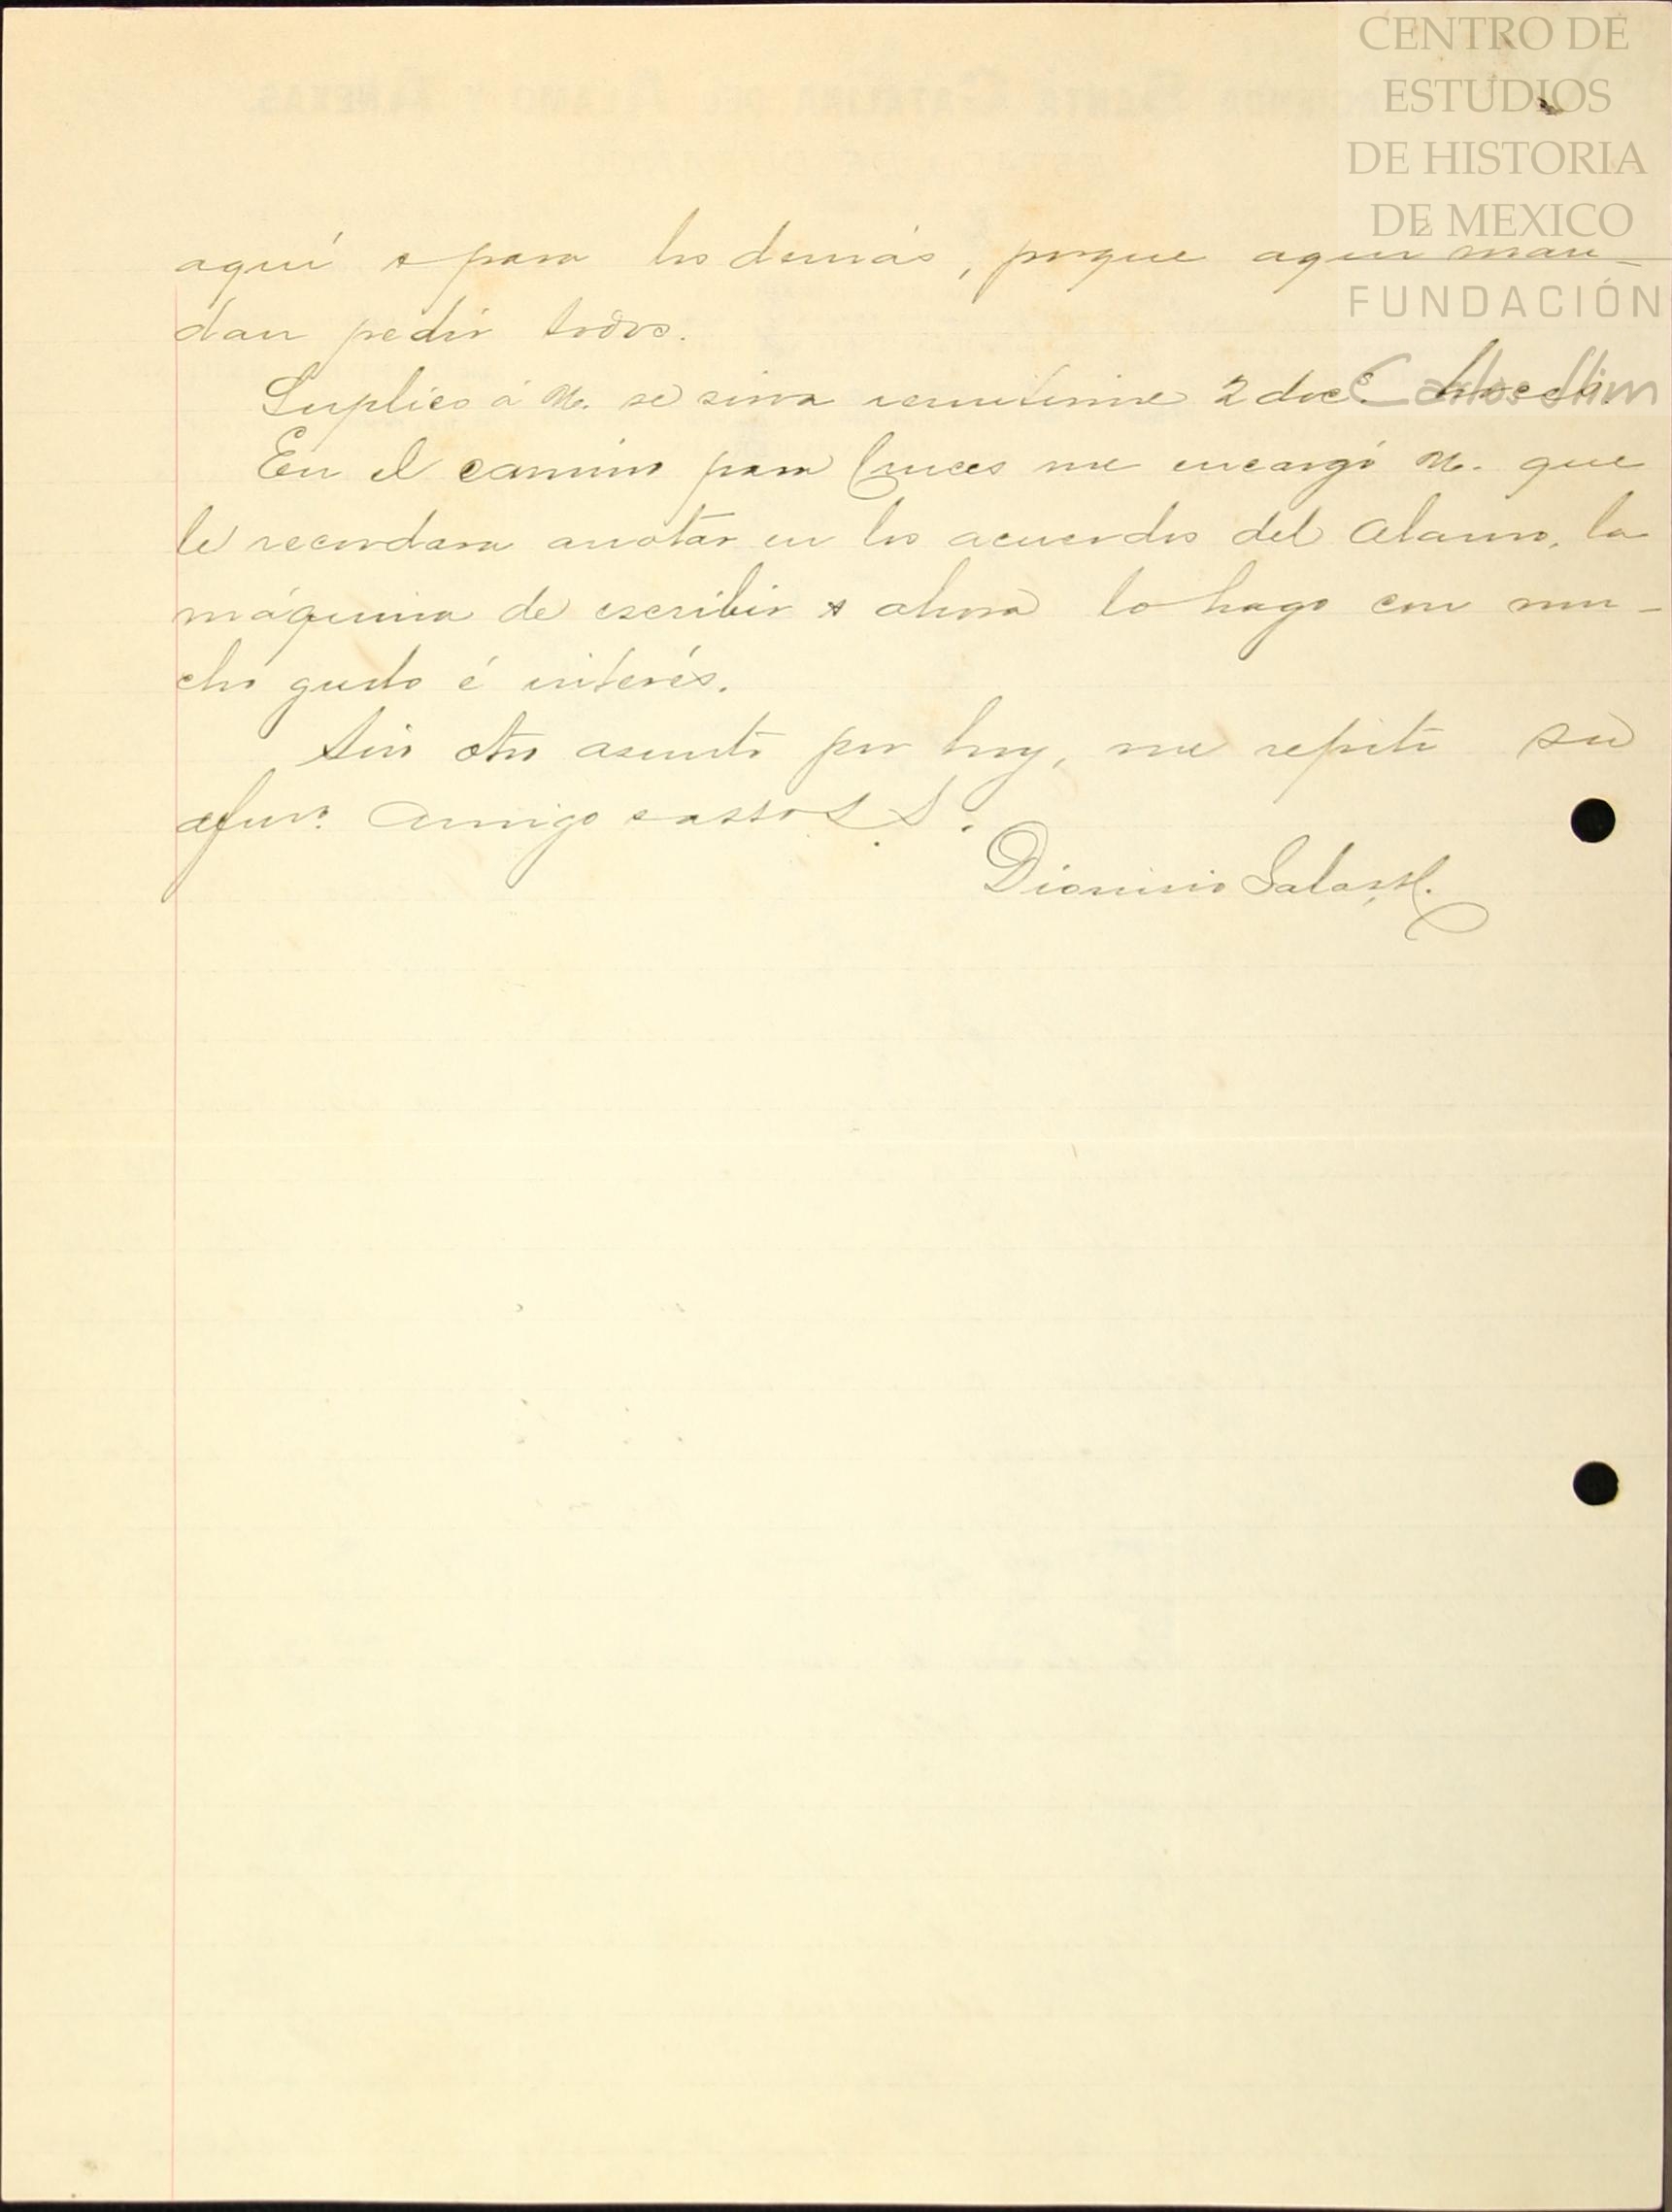 CENTRO DE
ESTUDIOS
DE HISTORIA
DE MEXICO
FUNDACIÓN
Carlos Slim
aquí y para los demás, porque aquí man-
dan pedir todos.
Suplico á U. se sirva remitirme 2 doc.s
En el camino para Cruces me encargó U. que
le recordara anotar en los acuerdos del Alamo, la
máquina de escribir y ahora lo hago con mu-
cho gusto é interés.
Sin otro asunto por hoy, me repito su
afmo. amigo y atto S. S.
Dionisio Salas